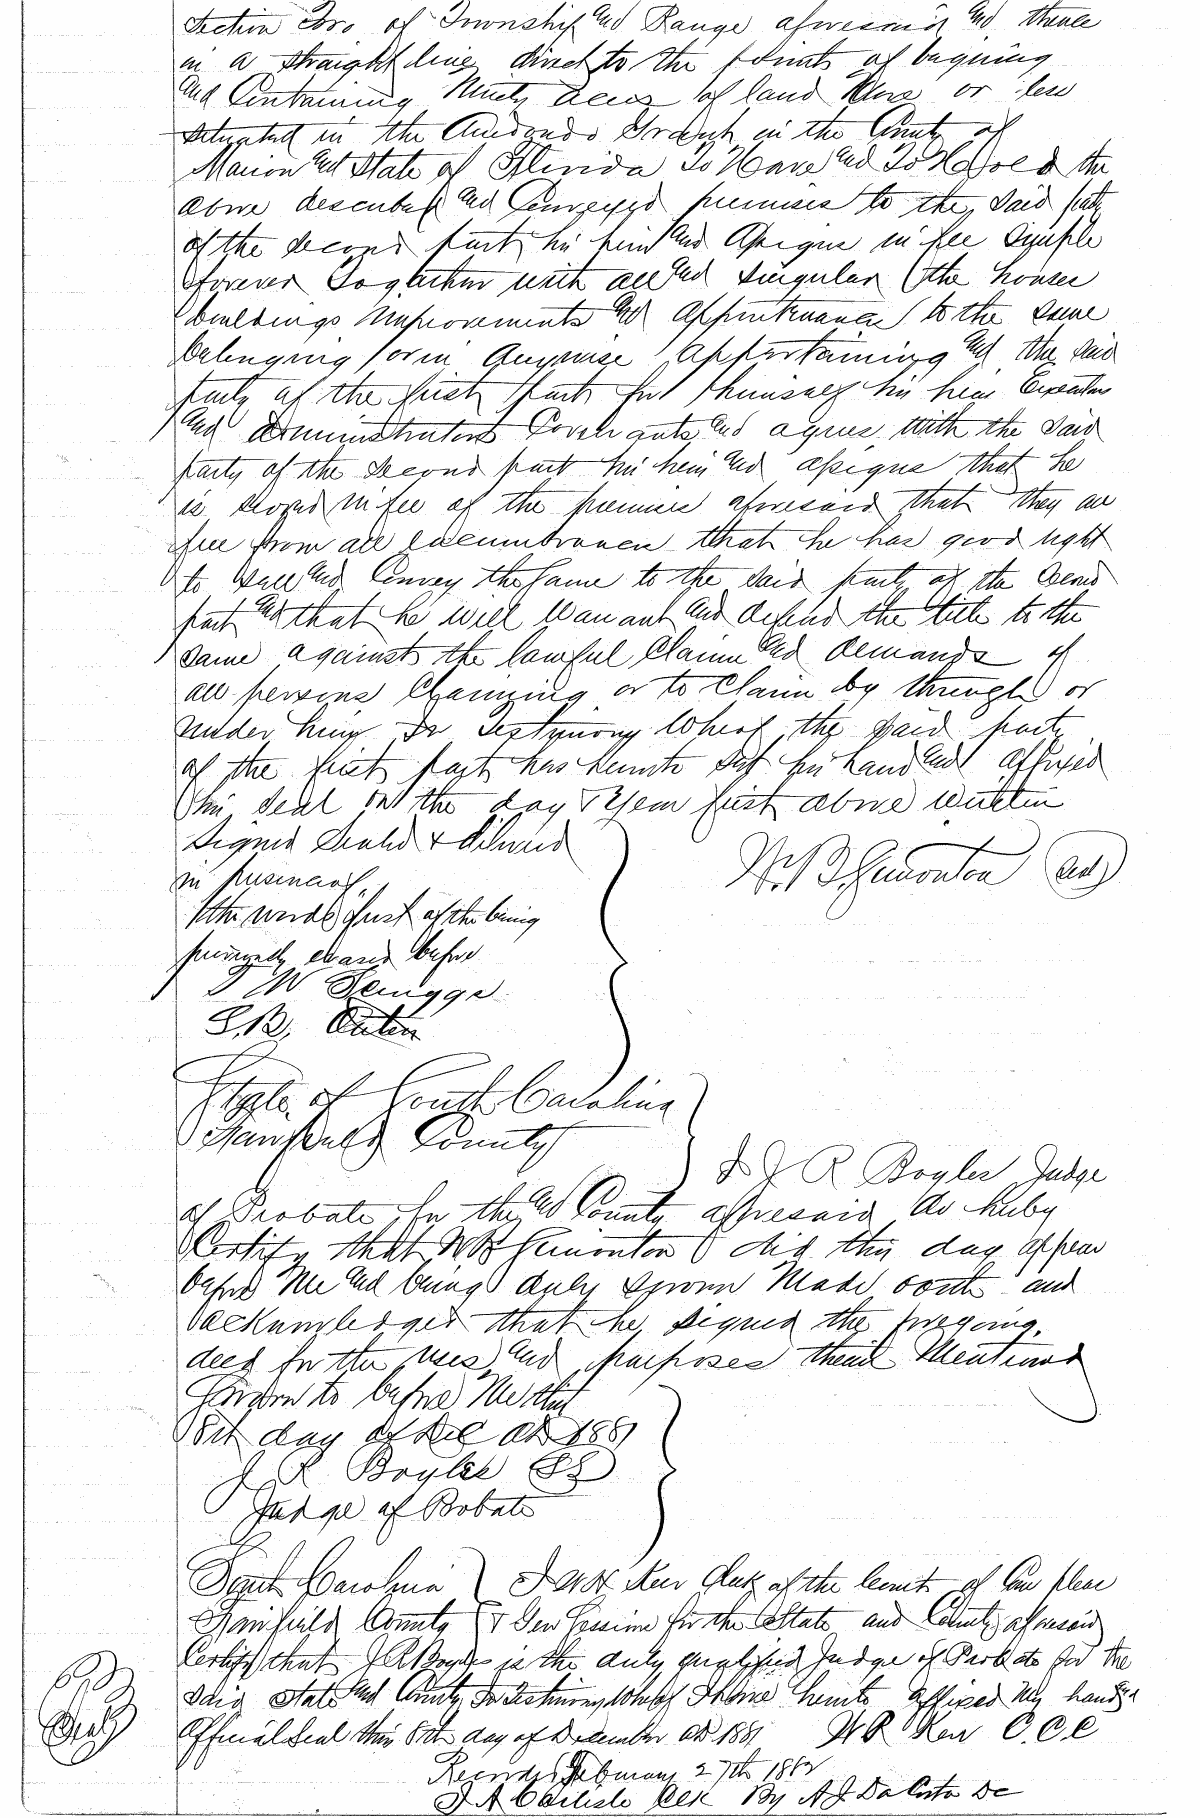 Section Two of Township and Range aforesaid and thence
in a straight line direct to the points of begining
and Containing Ninety acres of land More or less
situated in the Arredondo Grant in the County of
Marion and State of Florida To Have and To Hold the
above described and Conveyed premises to the said party
of the second part his heirs and Assigns in fee simple
forever Together with all and singular (the houses
buildings improvements and appurtenances) to the same
belonging or in anywise appertaining and the said
party of the first part for himself his heirs Executors
and administrators Covenants and agrees with the said
party of the second part his heirs and assigns that he
is seized in fee of the premises aforesaid that they are
free from all encumbrances that he has good right
to sell and Convey the same to the said party of the second
part and that he will warrant and defend the title to the
same against the lawful Claims and demands of
all persons Claiming or to Claim by through or
under him In Testimony Whereof the said party
of the first part has hereunto set his hand and affixed
his seal on the day & Year first above written
Signed Sealed & delivered
in presence of
(the words first of the being
erased before
S.B.
W.B. Simonton (seal)
State of South Carolina
Fairfield County
I J R Boyles Judge
of Probate for the and County aforesaid do hereby
Certify that W B Simonton did this day appear
before Me and being duly sworn Made oath and
acknowledged that he signed the foregoing
deed for the uses and purposes therein Mentioned
Sworn to before Me this
8th day of Dec AD 1881
J R Boyles
Judge of Probate
South Carolina
Fairfield County
I W R Kerr Clerk of the Court of Com pleas
& Gen Session for the State and County aforesaid
Certify that J R Boyles is the duly qualified Judge of Probate for the
said State and County In testimony Whereof I have hereunto affixed My hand &
Official Seal this 8th day of December AD 1881 W R Kerr C.C.C
Seal
Recorded February 27th 1882
J A Carlisle Clk By A J DaCosta DC